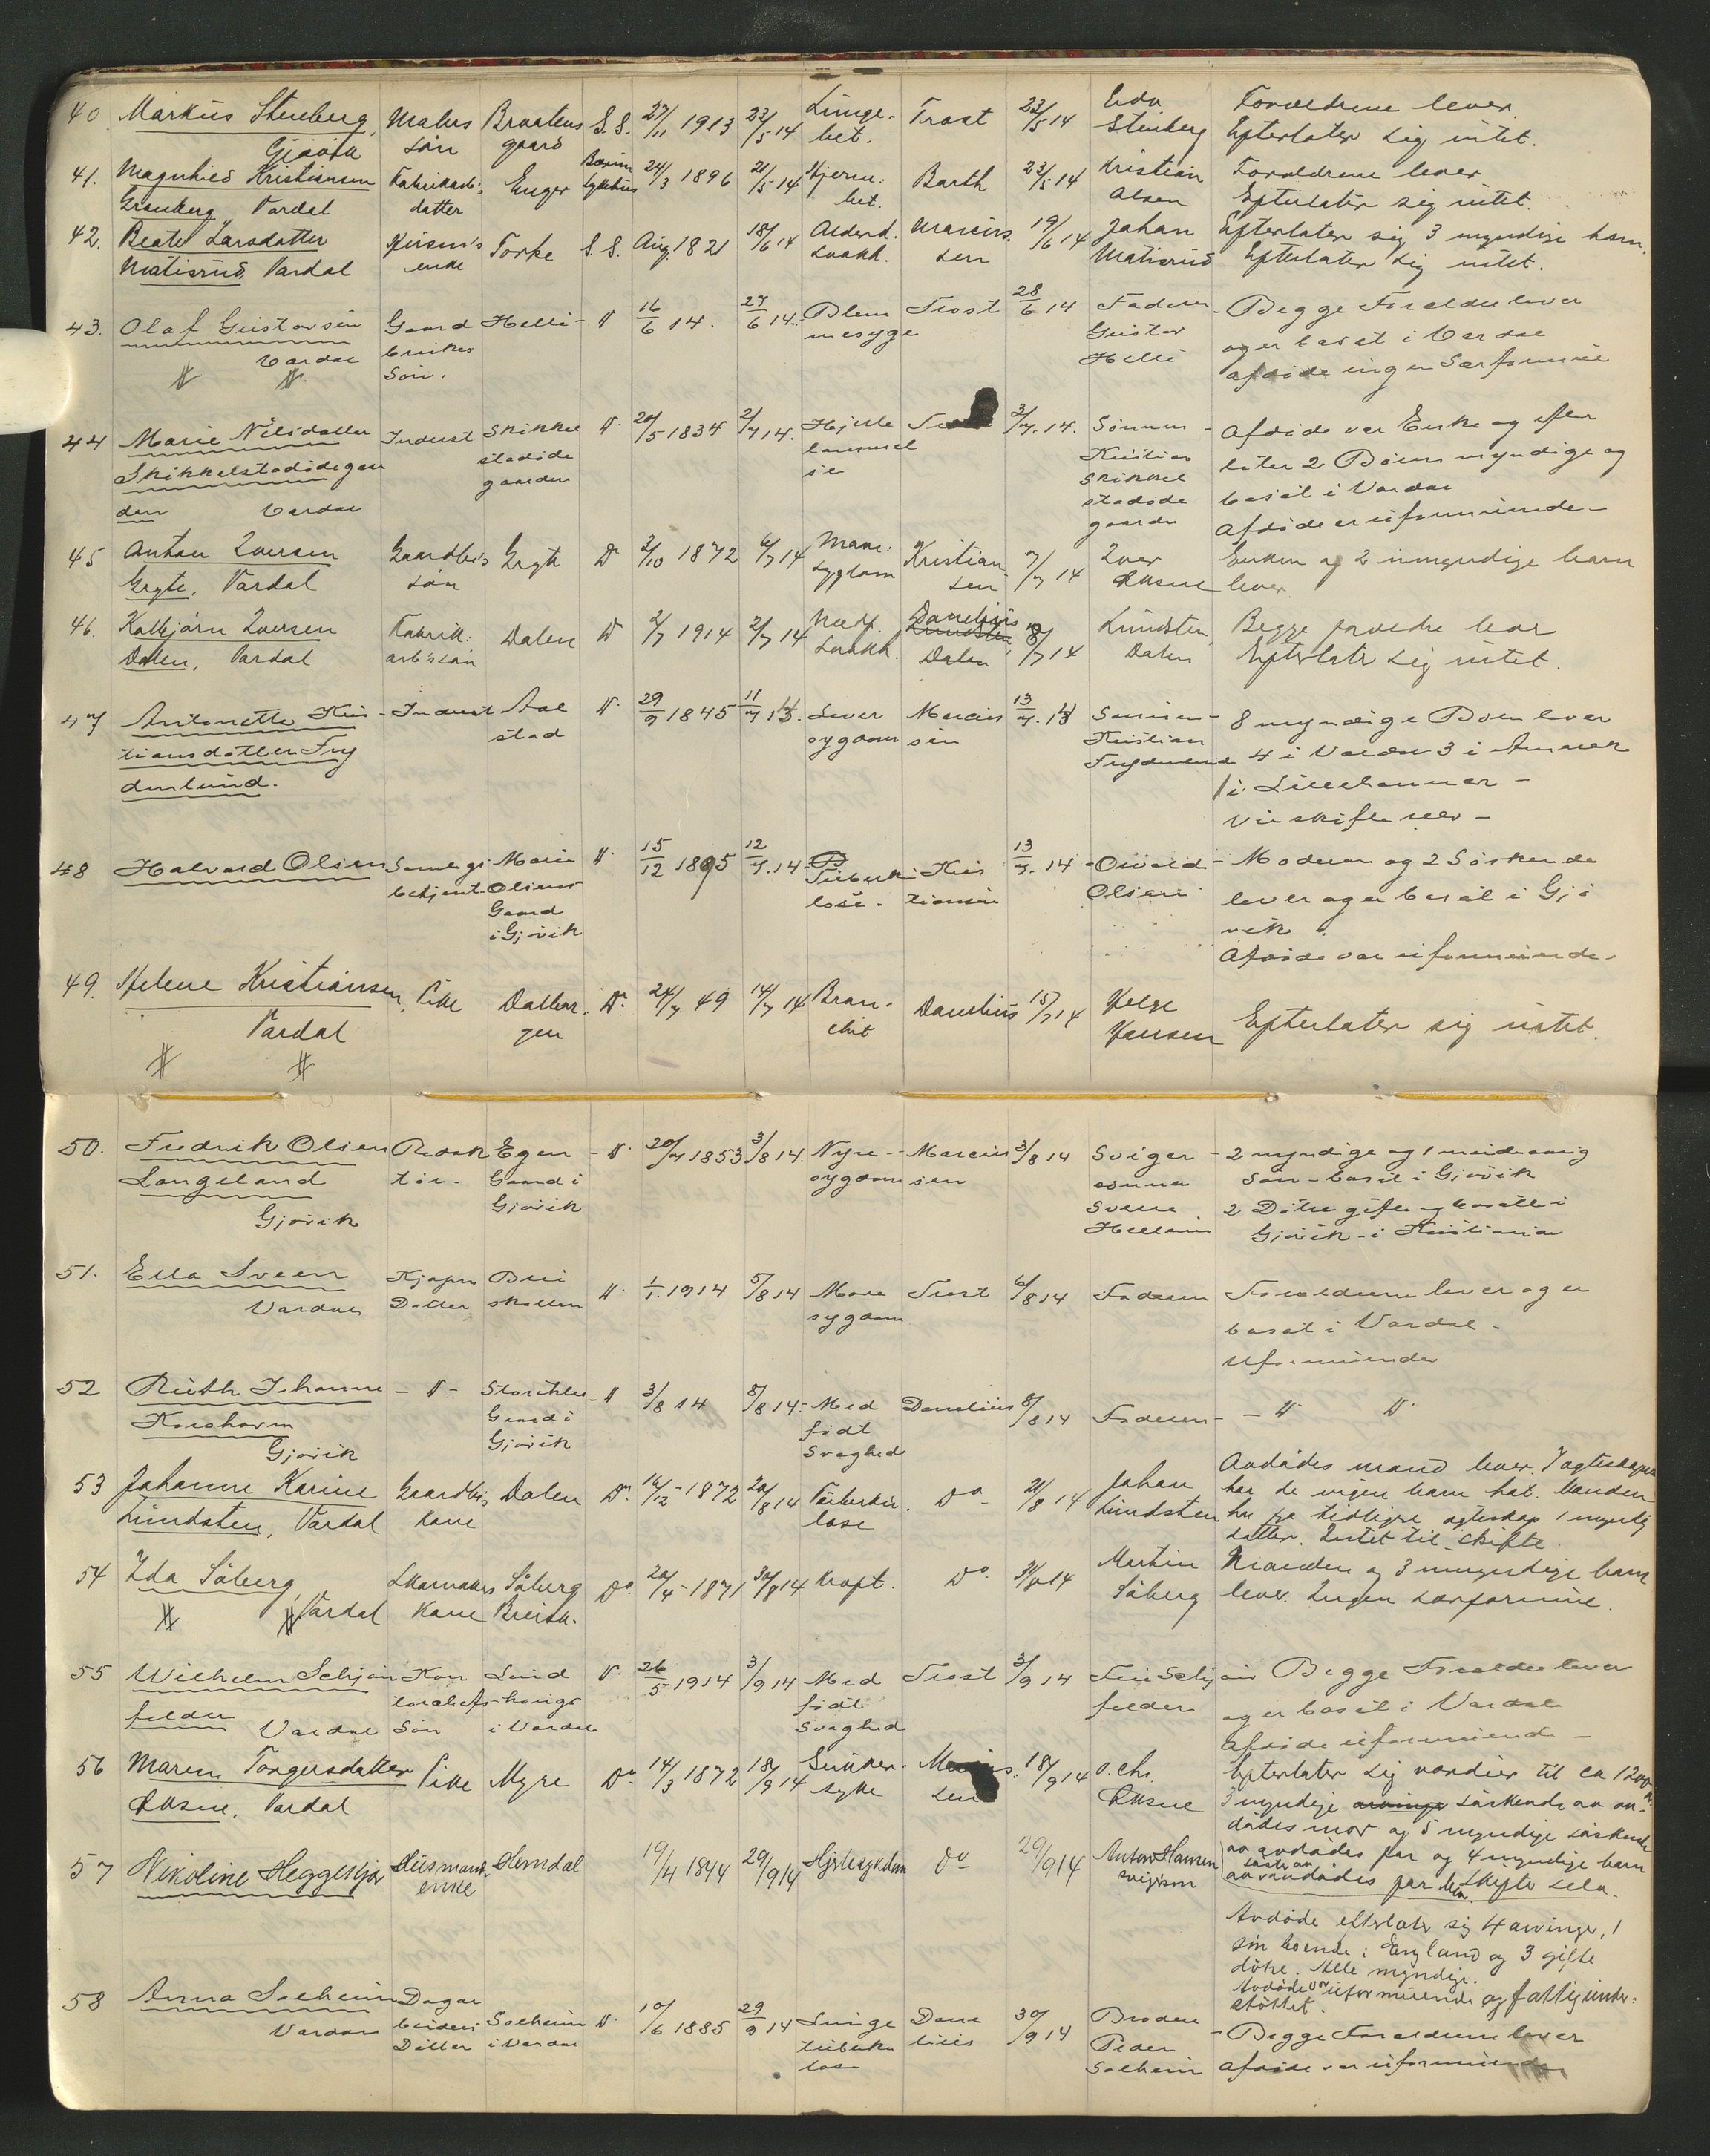 40 Markus Steneberg, Gjøvik Malers søn Braatens gaard S.S. 27/11 1913 23/5 14 Lunge-bet. Trost 23/5 14 Steneberg Forældrene lever. Efterlater sig intet.
41. Magnhild Kristiansen Granberg, Vardal Fabrikarb. datter Enger Sykehus 24/3 1896 21/5 14 Hjerne-bet. Barth 23/5 14 Kristian Olsen Forældrene lever. Efterlater sig intet.
42. Beate Larsdatter Matisrud, Vardal enke Torke S.S. Aug. 1821 18/6 14 Alderd. svakh. Marcus-sen 19/6 14 Johan Matisrud Efterlater sig 3 myndige barn. Efterlater sig intet.
43. Olaf Gustavsen Vardal Gaardbrukers Søn. Helli - " 16/6 14. 27/6 14. Blemmesyge Trost 28/6 14 Faderen Gustav Helli - Begge Forældre lever og er bosat i Vardal afdøde ingen Særformue
44 Marie Nilsdatter Skikkelstadødegaarden Vardal Inderst Skikkelstadødegaarden " 20/5 1834 2/7 14. Hjertelammelse 3/7. 14. Sønnen Kristian Skikkelstadødegaarden - Afdøde var Enke og efterlater 2 Børn myndige og bosat i Vardal Afdøde er uformuende -
45 Anton Iversen Gryte, Vardal Gaardbr's søn Gryte Do 3/10 1872 6/7 14 Mave-sygdom Kristian-sen 7/7 14 Iver Enken og 2 umyndige barn lever.
46. Kolbjørn Iversen Dalen, Vardal Fabrik-arb's søn Dalen Do 2/7 1914 2/7 14 Medf. Svakh. Danelius Dalen 8/7 14 Lundsten Dalen Begge forældre lever Efterlater sig intet.
47 Antonette Kristiansdatter Frydenlund. Inderst Aalstad " 29/9 1845 11/7 14. Leversygdom Marcussen 13/7. 14 Sønnen Kristian Frydenlund - 8 myndige Børn lever 4 i Vardal 3 i Amerika 1 i Lillehammer - Vil skifte selv -
48 Halvard Olsen betjent Marie Olsens Gaard i Gjøvik " 15/12 1895 12/7. 14 - Tuberkulose - Kristiansen 13/7. 14 - Osvald Olsen - Moderen og 2 Søskende lever og er bosat i Gjøvik. Afdøde var uformuende.
49. Helene Kristiansen, Vardal Pike Dalborgen Do. 24/7 49 14/7 14 Bron-chit Danelius 15/7 14 Helge Hansen Efterlater sig intet.
50. Fredrik Olsen Langeland Gjøvik Redaktør. Egen Gaard i Gjøvik - " 20/7 1853 3/8 14. Nyresygdom Marcussen 3/8 14 Svigersønnen - 2 myndige og 1 mindreaarig Søn - bosat i Gjøvik 2 Døtre gifte og bosatte i Gjøvik - i Kristiania
51. Ella Sveen Vardal Datter Bruiskollen " 1/1. 1914 5/8 14 Mavesygdom Trost 6/8 14 Faderen Forældrene lever og er bosat i Vardal - Uformuende
52 Ruth Johanne Korshavn Gjøvik - " - Gaard i Gjøvik - " 3/8 14 8/8 14 - Medfødt Svaghed Danelius 8/8 14 Faderen - - " "
53 Johanne Karine Lundsten, Vardal Gaardbr's kone Dalen Do. 16/12 - 1872 20/8 14 Tuberku-lose. Do - 21/8 14 Johan Lundsten Avdødes mand lever. I egteskapet har de ingen barn hat. Manden har fra tidligere egteskap 1 myndig datter. Intet til skifte.
54 Ida Søberg, Vardal Skomakers kone Søberg Bruisk. Do. 20/4 - 1871 30/8 14 Kræft. Do. 31/8 14 Martin Søberg Manden og 3 umyndige barn lever. Ingen særformue.
55 Wilhelm Schjønfelder Vardal Kontorchefs Søn Lundhaugs i Vardal " 26/5 1914 3/9 14 Medfødt Svaghed Trost 3/9 14 Schjønfelder Begge Forældre lever og er bosat i Vardal Afdøde uformuende -
56 Maren Torgersdatter Vardal Pike Myre Do 14/3 1872 18/9 14 Sukker-syke Marcus-sen 18/9 14 O. Chr. Efterlater sig værdier til ca 1200 kr. 3 myndige søskende av avdødes mor og 5 myndige søskende av avdødes far og 4 myndige barn av avdødes far Skifte selv.
57 Nikoline Heggeskjær Husmands enke Stemdal 19/4 1844 29/9 14 Hjertesygdom Do 29/9 14 Anton Hansen svigersøn Avdøde efterlater sig 4 arvinger, 1 søn boende i England og 3 gifte døtre. Alle myndige. Avdøde var uformuende og fattigunderstøttet.
58 Anna Solheim Vardal Dagarbeiders Datter Solheim i Vardal " 10/6 1885 29/9 14 Lungetuberkulose Danelius 30/9 14 Broderen Peder Solheim - Begge Forældrene lever afdøde var uformuende